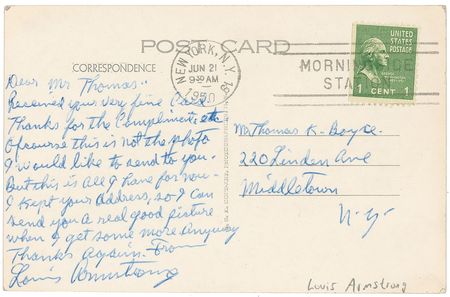 POST CARD
CORRESPONDENCE
NEW YORK, N.Y. 18
JUN 21
9 30 AM
1950
MORNINGSIDE
STATION
UNITED
STATES
POSTAGE
1 CENT 1
Dear Mr Thomas"
Received your very fine Card.
Thanks for the Compliments, etc
Of course this is not the photo
I would like to send to you.
But this is all I have for now-
I Kept your Address, so I can
send you a real good picture
when I get some more anyway
Thanks Again. From
Louis Armstrong
Mr Thomas K. Boyce.
220 Linden Ave
Middletown
N-Y-
Louis Armstrong